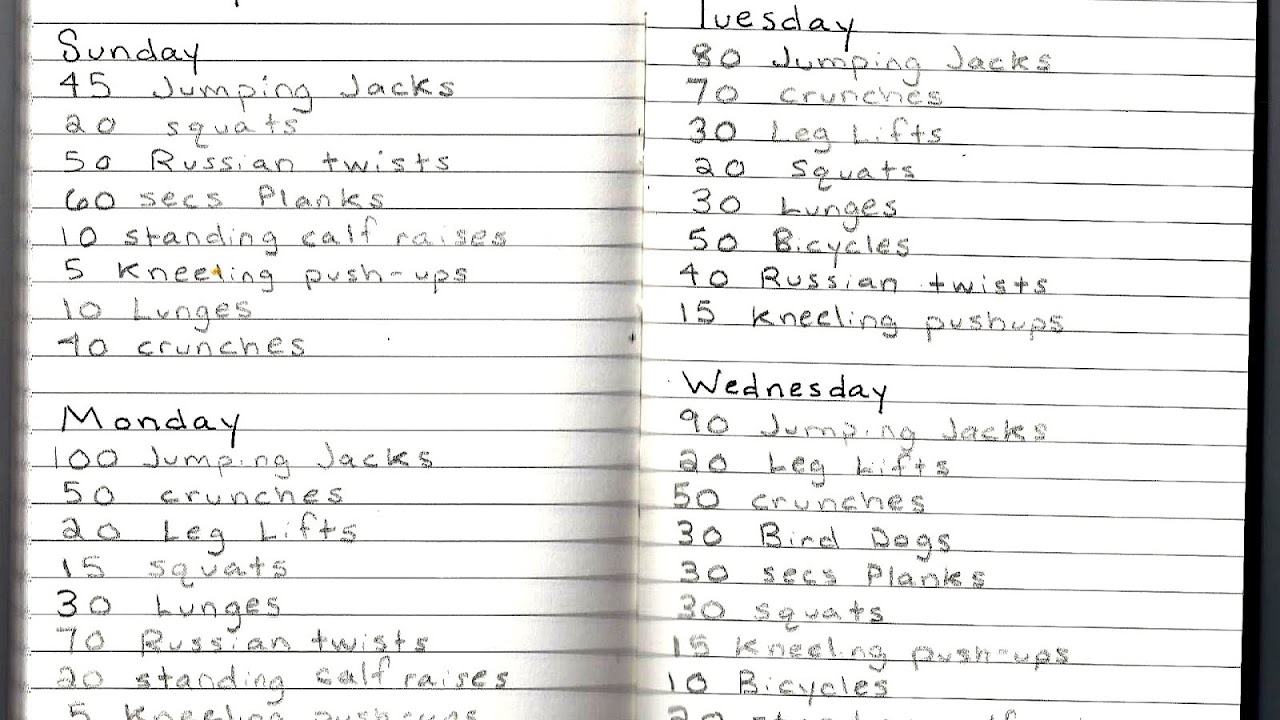 Sunday
45 Jumping Jacks
20 squats
50 Russian twists
60 secs Planks
10 standing calf raises
5 Kneeling push-ups
10 Lunges
40 crunches
Monday
100 Jumping Jacks
50 crunches
20 Leg Lifts
15 squats
30 Lunges
70 Russian twists
20 standing calf raises
5 Kneeling pushups
Tuesday
80 Jumping Jacks
70 crunches
30 Leg Lifts
20 Squats
30 Lunges
50 Bicycles
40 Russian twists
15 Kneeling pushups
Wednesday
90 Jumping Jacks
20 Leg Lifts
50 crunches
30 Bird Dogs
30 secs Planks
30 squats
15 Kneeling push-ups
10 Bicycles
20